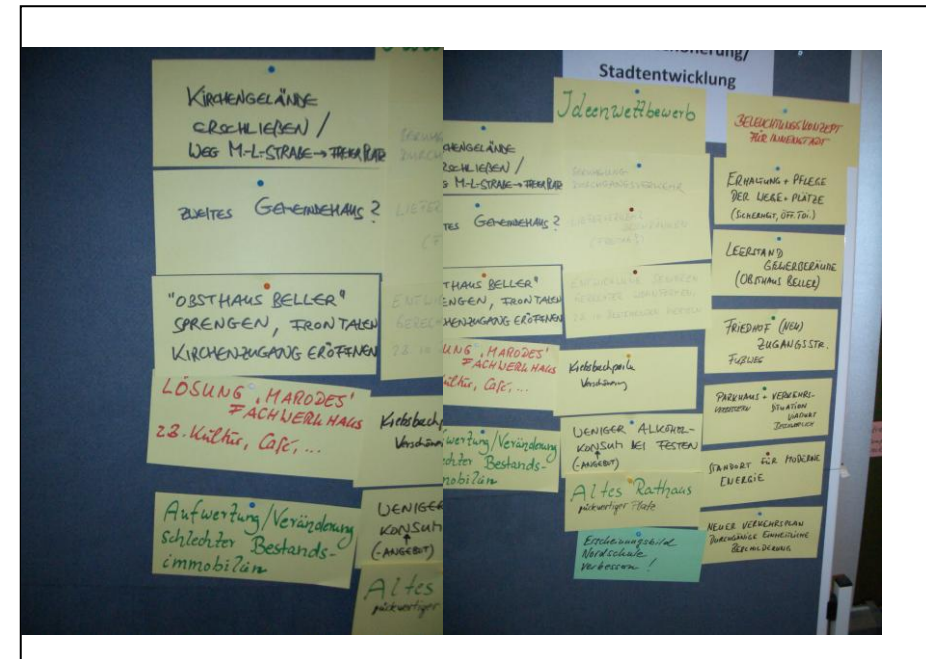 KIRCHENGELÄNDE
ERSCHLIEßEN /
WEG M.-L-STRAßE → FREIER PLATZ
ZWEITES GEMEINDEHAUS ?
"OBSTHAUS BELLER"
SPRENGEN, FRONTALEN
KIRCHENZUGANG ERÖFFNEN
LÖSUNG ,MARODES'
FACHWERKHAUS
z.B. Kultur, Café, ...
Aufwertung/Veränderung
schlechter Bestands-
immobilien
Kiebsbach
Verschöner
WENIGER
KONSUM
(-ANGEBOT)
Altes
rückwertiger
Stadtentwicklung
HENGELÄNDE
RSCHLIEßEN /
M-L-STRAßE → FREIER PLATZ
TES GEMEINDEHAUS ?
THAUS BELLER"
ENGEN, FRONTALEN
HENZUGANG ERÖFFNEN
UNG ,MARODES'
FACHWERKHAUS
Kultur, Café, ...
wertung/Veränderung
echter Bestands-
mobilien
Ideenwettbewerb
DURCHGANGSVERKEHR
Kiebsbachpark
Verschönerung
WENIGER ALKOHOL-
KONSUM BEI FESTEN
(-ANGEBOT)
Altes Rathaus
rückwertiger Platz
Erscheinungsbild
Nordschule
verbessern !
BELEUCHTUNGSKONZEPT
FÜR INNENSTADT
ERHALTUNG + PFLEGE
DER WEGE + PLÄTZE
(SICHERHEIT, ÖFF. TOI.)
LEERSTAND
GEWERBERÄUME
(OBSTHAUS BELLER)
FRIEDHOF (NEU)
ZUGANGSSTR.
FUßWEG
PARKHAUS + VERKEHRS-
SITUATION
STANDORT FÜR MODERNE
ENERGIE
NEUER VERKEHRSPLAN
DURCHGÄNGIG EINHEITLICHE
BESCHILDERUNG